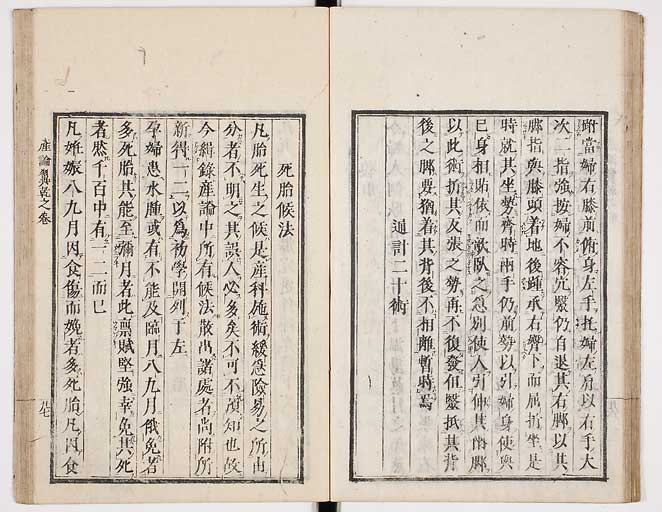 跗當婦右膝前俯身左手托婦左肩以右手大
次二指強按婦不容宂緊仍自退其右脚以其
脚指與膝頭着地後踵承右臀下而屈折坐是
時就其坐勢齊時兩手仍前勢以引婦身使與
己身相貼依而欹臥之急別使人引伸其兩脚
以此術折其反張之勢再不復發但緊抵其背
後之脚要猶着其背後不相離暫時焉
通計二十術
死胎候法
凡胎死生之候是産科施術緩急險易之所由
分者不明之其誤人必多矣不可不預知也故
今緝錄産論中所有候法散出諸處者尚附所
新得一二以爲初學開列于左
孕婦患水腫或有不能及臨月八九月俄免者
多死胎其能至彌月者此稟賦堅強幸免其死
者然千百中有一二而已
凡姙娠八九月因食傷而娩者多死胎凡因食
産論翼乾之卷